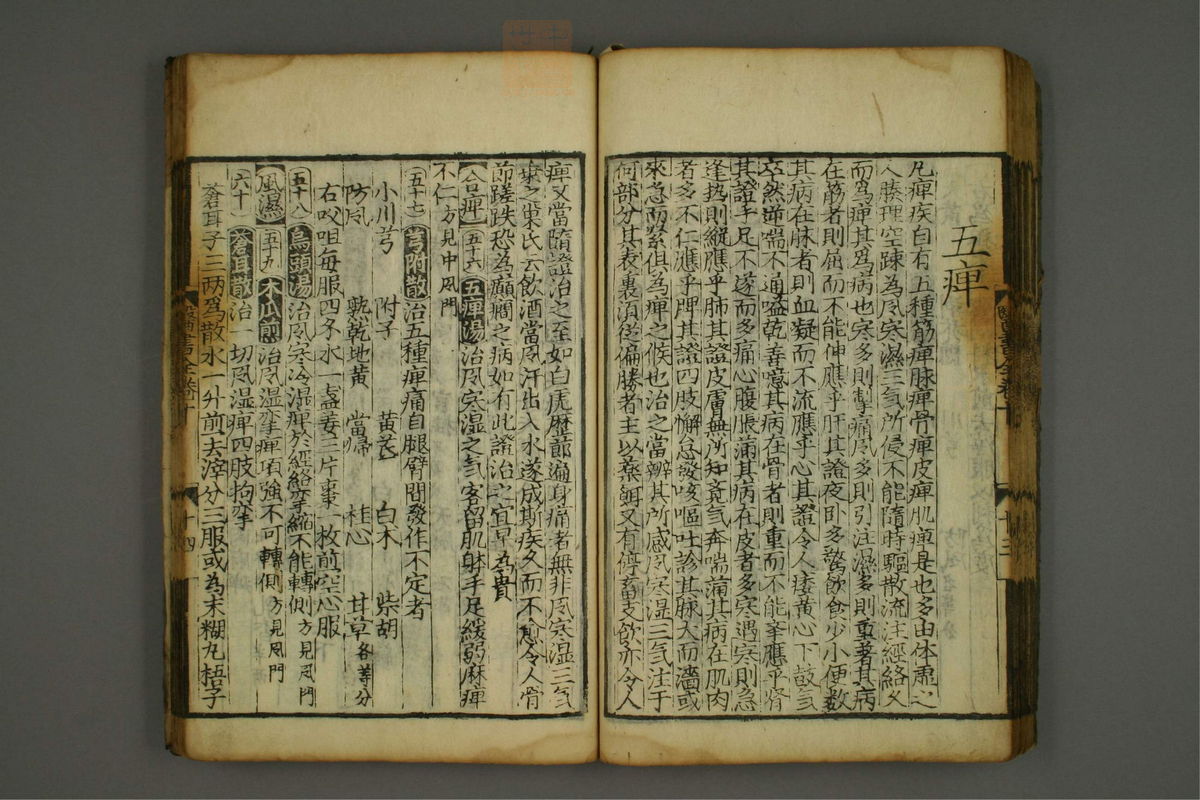 五痺
凡痺疾自有五種筋痺脉痺骨痺皮痺肌痺是也多由体虛之
人腠理空踈為風寒濕三氣所侵不能隨時驅散流注經絡久
而為痺其為病也寒多則掣痛風多則引注濕多則重著其病
在筋者則屈而不能伸應乎肝其證夜卧多驚飲食少小便数
其病在脉者則血凝而不流應乎心其證令人痿黄心下鼓氣
卒然逆喘不通嗌乾善噫其病在骨者則重而不能举應乎腎
其證手足不遂而多痛心腹脹滿其病在皮者多寒遇寒則急
逢热則縱應乎肺其證皮膚無所知竟氣奔喘滿其病在肌肉
者多不仁應乎脾其證四肢懈怠發咳嘔吐診其脉大而濇或
來急而緊俱為痺之候也治之當辨其所感風寒湿三气注于
何部分其表裏須從偏勝者主以藥餌又有停畜支飲亦令人
痺又當隨證治之至如白虎歷節遍身痛者無非風寒湿三气
乘之巢氏云飲酒當風汗出入水遂成斯疾久而不愈令人骨
節蹉跌恐為癲癇之病如有此證治之宜早為貴
合痺 五十六 五痺湯 治風寒湿之气客留肌躰手足緩弱麻痺
不仁方見中風門
五十七 芎附散 治五種痺痛自腿臂間發作不定者
小川芎 附子 黄芪 白术 柴胡
防風 熟乾地黄 當歸 桂心 甘草各等分
右㕮咀每服四钱水一盞姜三片棗一枚煎空心服
五十八 烏頭湯 治風寒冷湿痺於經絡挛縮不能轉側方見風門
風濕 五十九 木瓜煎 治風湿挛痺項強不可轉側方見風門
六十 蒼耳散 治一切風湿痺四肢拘挛
蒼耳子三两為散水一升煎去滓分三服或為末糊丸梧子
醫書全卷十
十三
十四